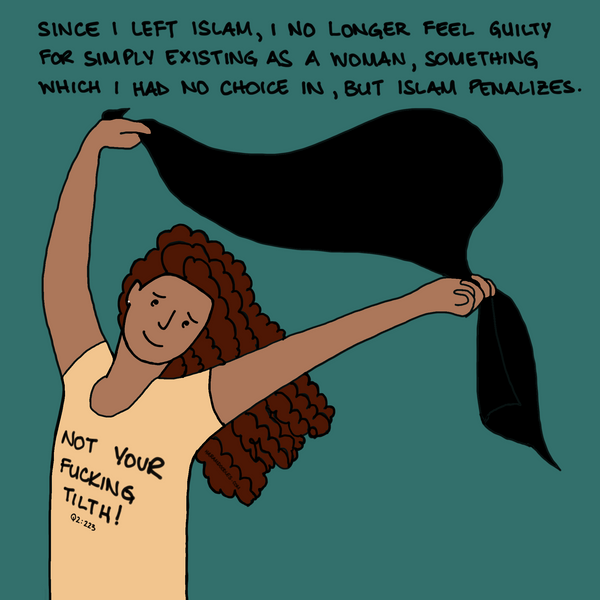 SINCE I LEFT ISLAM, I NO LONGER FEEL GUILTY
FOR SIMPLY EXISTING AS A WOMAN, SOMETHING
WHICH I HAD NO CHOICE IN, BUT ISLAM PENALIZES.
NOT YOUR
FUCKING
TILTH!
Q2:223